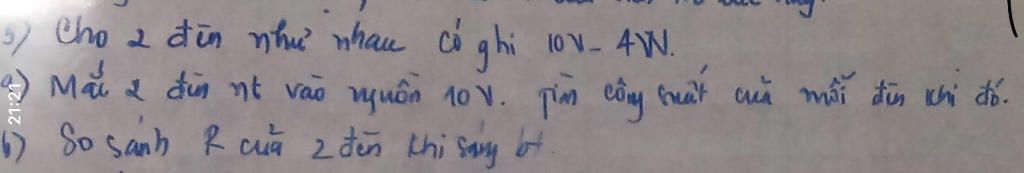 5) Cho 2 đèn như nhau có ghi 10V - 4W.
a) Mắc 2 đèn nt vào nguồn 10V. Tìm công suất của mỗi đèn khi đó.
21:21
b) So sánh R của 2 đèn khi sáng bt.